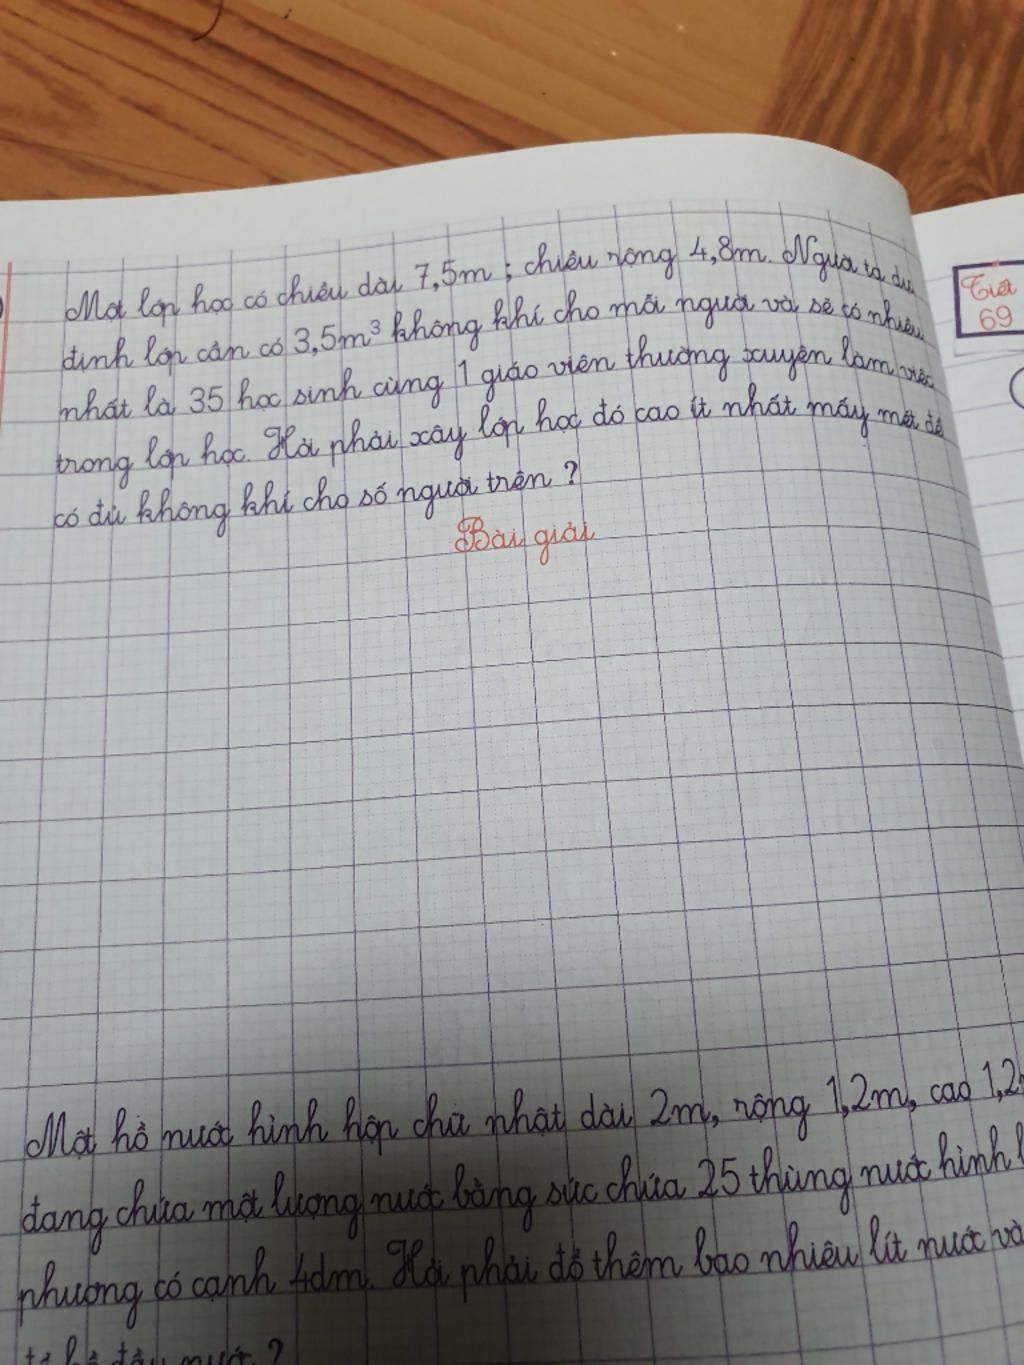 Một lớp học có chiều dài 7,5m ; chiều rộng 4,8m. Người ta dự
định lớp cần có 3,5m³ không khí cho mỗi người và sẽ có nhiều
nhất là 35 học sinh cùng 1 giáo viên thường xuyên làm việc
trong lớp học. Hỏi phải xây lớp học đó cao ít nhất mấy mét để
có đủ không khí cho số người trên ?
Bài giải
Tiết
69
Một hồ nước hình hộp chữ nhật dài 2m, rộng 1,2m, cao 1,2
đang chứa một lượng nước bằng sức chứa 25 thùng nước hình
phương có cạnh 4dm. Hỏi phải đổ thêm bao nhiêu lít nước và
để hồ đầy nước ?